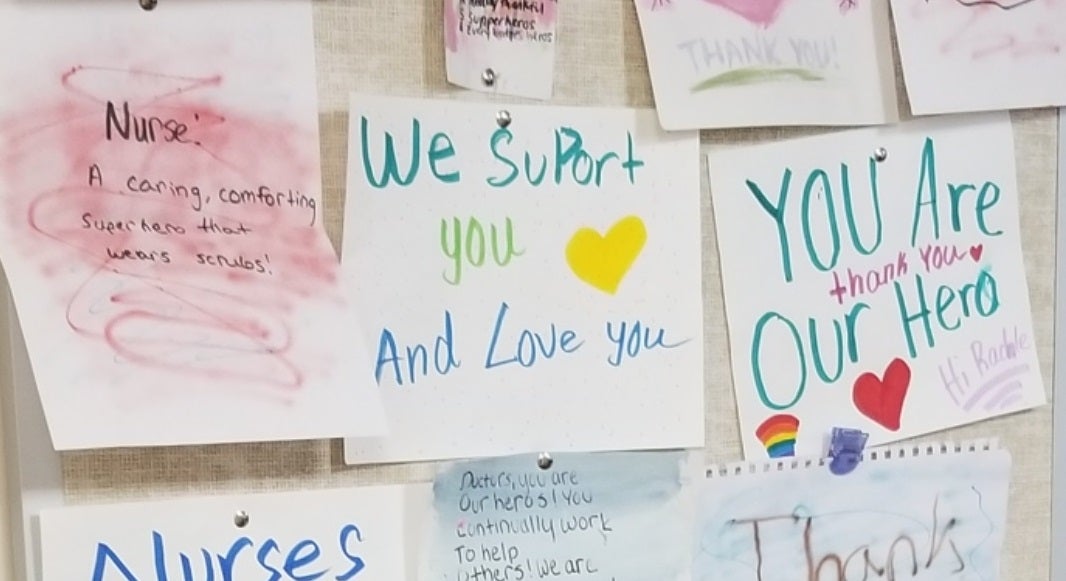 Supperheros
THANK YOU!
Nurse:
A caring, comforting
superhero that
wears scrubs!
We SuPort
you
And Love you
YOU Are
thank You
Our Hero
Hi
Nurses
Doctors, you are
Our heros! You
continually work
To help
Others! We are
Thank